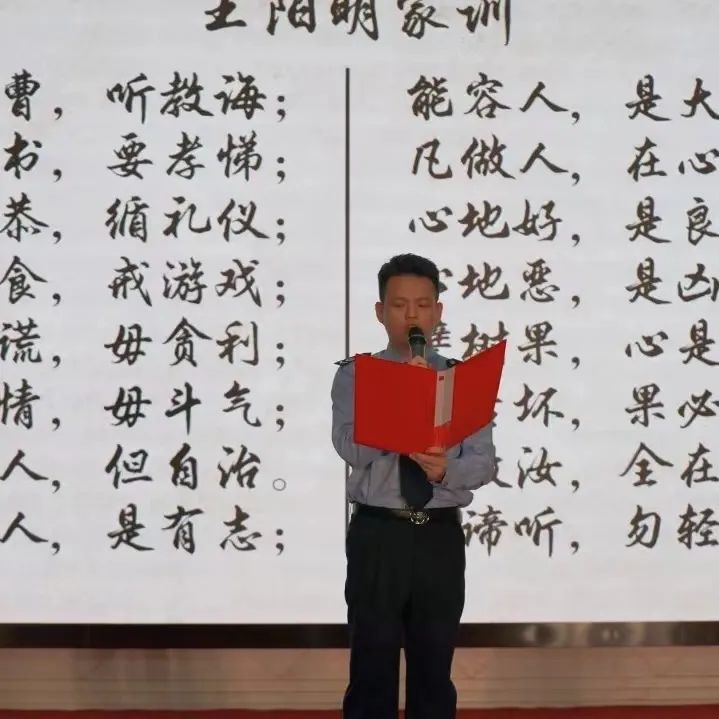 王阳明家训
曹，听教诲；
书，要孝悌；
恭，循礼仪；
食，戒游戏；
谎，毋贪利；
情，毋斗气；
人，但自治。
人，是有志；
能容人，是大
凡做人，在心
心地好，是良
地恶，是凶
树果，心是
坏，果必
汝，全在
谛听，勿轻